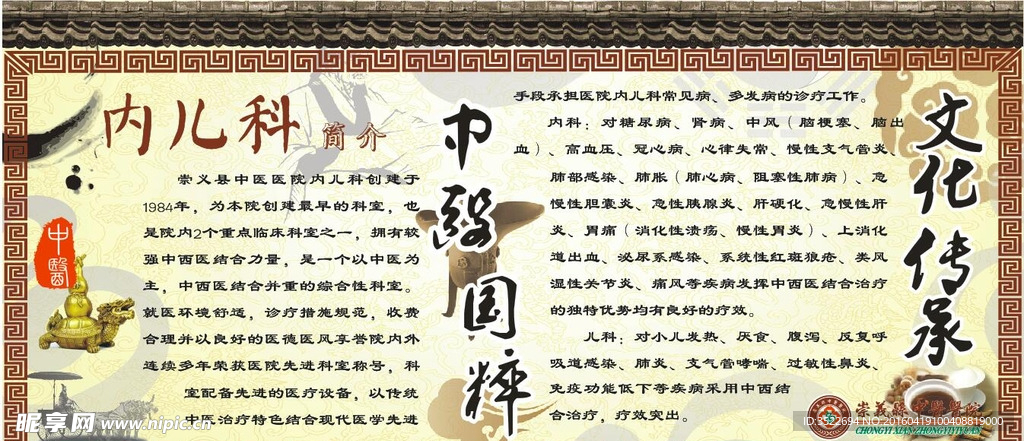 内儿科 简介
崇义县中医医院内儿科创建于
1984年，为本院创建最早的科室，也
是院内2个重点临床科室之一，拥有较
强中西医结合力量，是一个以中医为
主，中西医结合并重的综合性科室。
就医环境舒适，诊疗措施规范，收费
合理并以良好的医德医风享誉院内外
连续多年荣获医院先进科室称号，科
室配备先进的医疗设备，以传统
中医治疗特色结合现代医学先进
中醫
巾毉国粹
手段承担医院内儿科常见病、多发病的诊疗工作。
内科：对糖尿病、肾病、中风（脑梗塞、脑出
血）、高血压、冠心病、心律失常、慢性支气管炎、
肺部感染、肺胀（肺心病、阻塞性肺病）、急
慢性胆囊炎、急性胰腺炎、肝硬化、急慢性肝
炎、胃痛（消化性溃疡、慢性胃炎）、上消化
道出血、泌尿系感染、系统性红斑狼疮、类风
湿性关节炎、痛风等疾病发挥中西医结合治疗
的独特优势均有良好的疗效。
儿科：对小儿发热、厌食、腹泻、反复呼
吸道感染、肺炎、支气管哮喘、过敏性鼻炎、
免疫功能低下等疾病采用中西结
合治疗，疗效突出。
文化传承
崇義縣中醫醫院
CHONGYIXIANZHONGYIYIYUAN
昵享网 www.nipic.cn
ID:3522694 NO:20160419100408819000